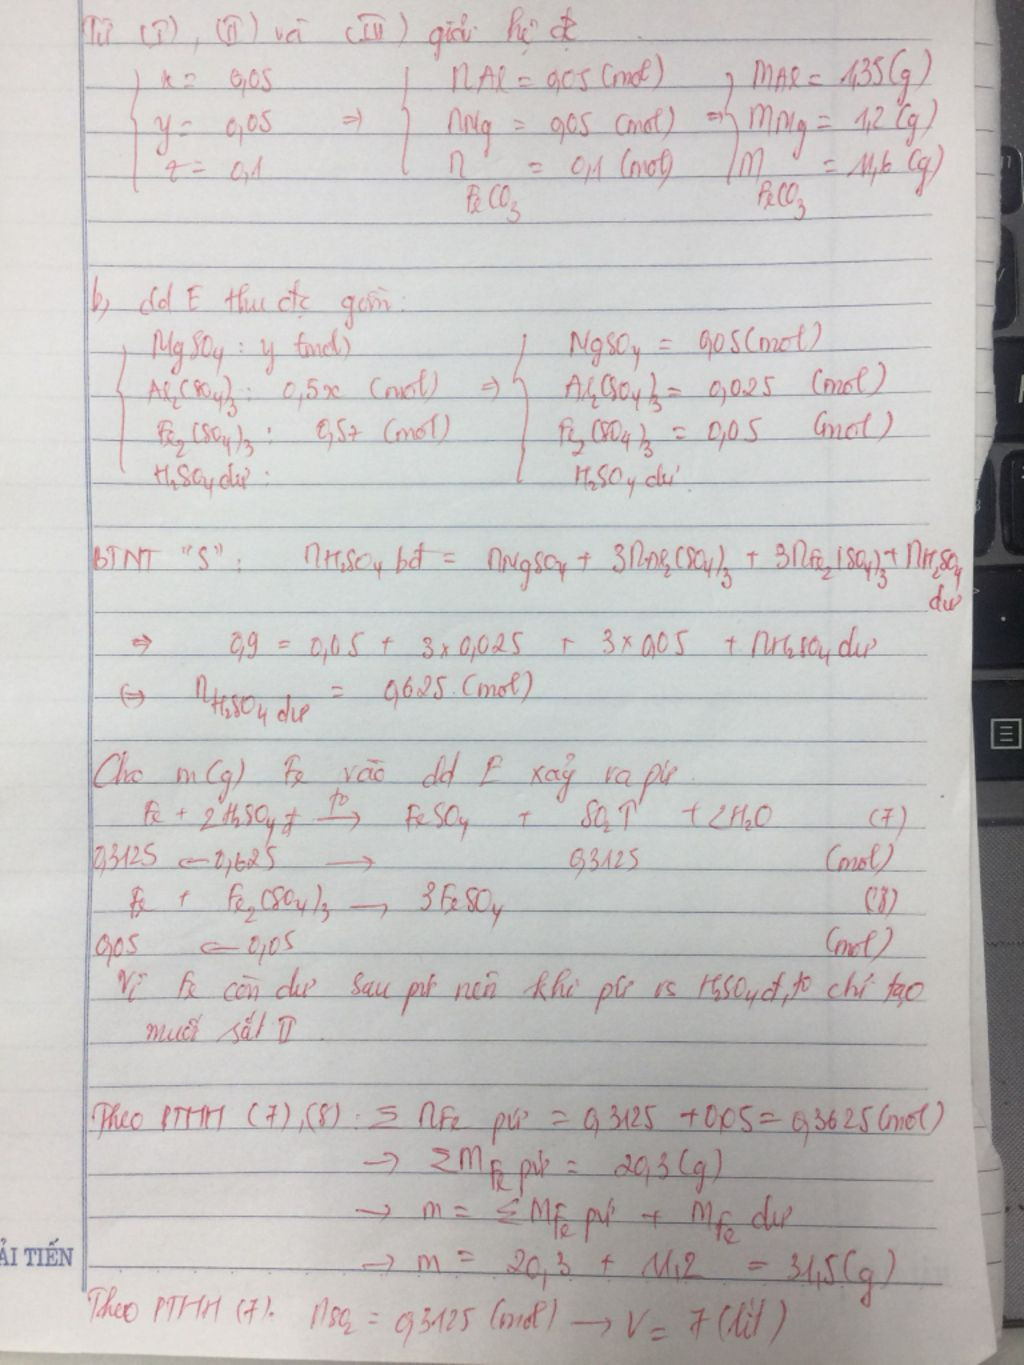 Từ (I), (II) và (IV) giải hệ đc
x = 0,05 => nAl = 0,05 (mol) => mAl = 1,35 (g)
y = 0,05 nMg = 0,05 (mol) mMg = 1,2 (g)
z = 0,1 nFeCO3 = 0,1 (mol) mFeCO3 = 11,6 (g)
b, dd E thu đc gồm:
MgSO4 : y (mol) MgSO4 = 0,05 (mol)
Al2(SO4)3 : 0,5x (mol) => Al2(SO4)3 = 0,025 (mol)
Fe2(SO4)3 : 0,5z (mol) Fe2(SO4)3 = 0,05 (mol)
H2SO4 dư : H2SO4 dư
BTNT "S" : nH2SO4 bđ = nMgSO4 + 3nAl2(SO4)3 + 3nFe2(SO4)3 + nH2SO4 dư
=> 0,9 = 0,05 + 3x0,025 + 3x0,05 + nH2SO4 dư
<=> nH2SO4 dư = 0,625 (mol)
Cho m(g) Fe vào dd E xảy ra pư
Fe + 2H2SO4 đ -to-> FeSO4 + SO2↑ + 2H2O (7)
0,3125 <- 0,625 -> 0,3125 (mol)
Fe + Fe2(SO4)3 -> 3FeSO4 (8)
0,05 <- 0,05 (mol)
Vì Fe còn dư sau pư nên khi pư vs H2SO4 đ, to chỉ tạo
muối sắt II
Theo PTHH (7), (8) : Σ nFe pư = 0,3125 + 0,05 = 0,3625 (mol)
-> ΣmFe pư = 20,3 (g)
-> m = ΣmFe pư + mFe dư
ẢI TIẾN -> m = 20,3 + 11,2 = 31,5 (g)
Theo PTHH (7). nSO2 = 0,3125 (mol) -> V = 7 (lít)